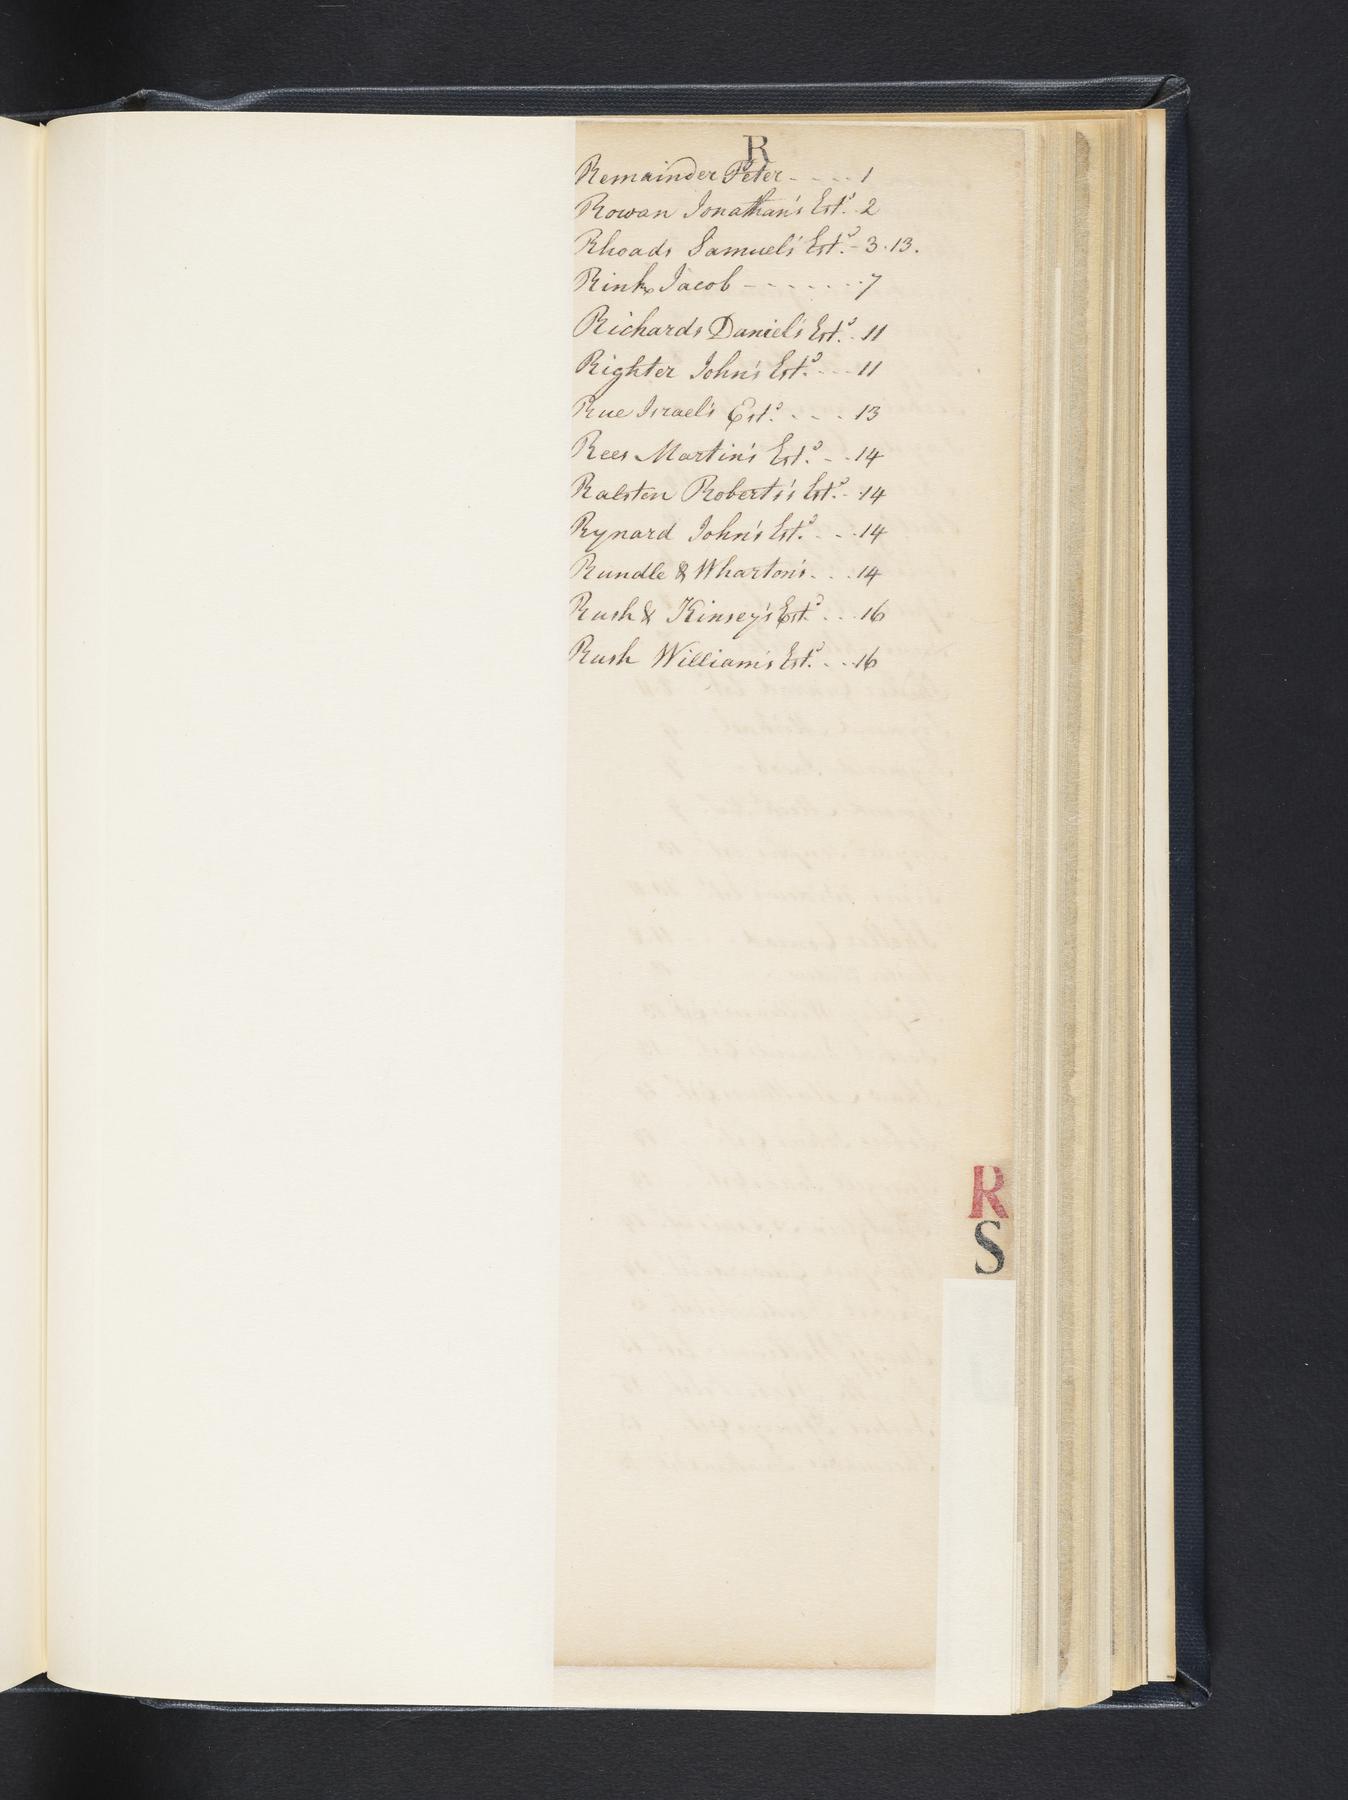 R
Remainder Peter - - - - 1
Rowan Jonathan's Estd. 2
Rhoads Samuel's Estd. - 3.13.
Rink Jacob - - - - - - - 7
Richards Daniel's Estd. . 11
Righter John's Estd. - - - 11
Rue Israel's Estd. - - - 13
Rees Martin's Estd. - - . 14
Ralston Roberts's Estd. - 14
Rynard John's Estd. - - . 14
Rundle & Wharton's. . . 14
Rush & Kinsey's Estd. . . 16
Rush William's Estd. . . 16
R
S